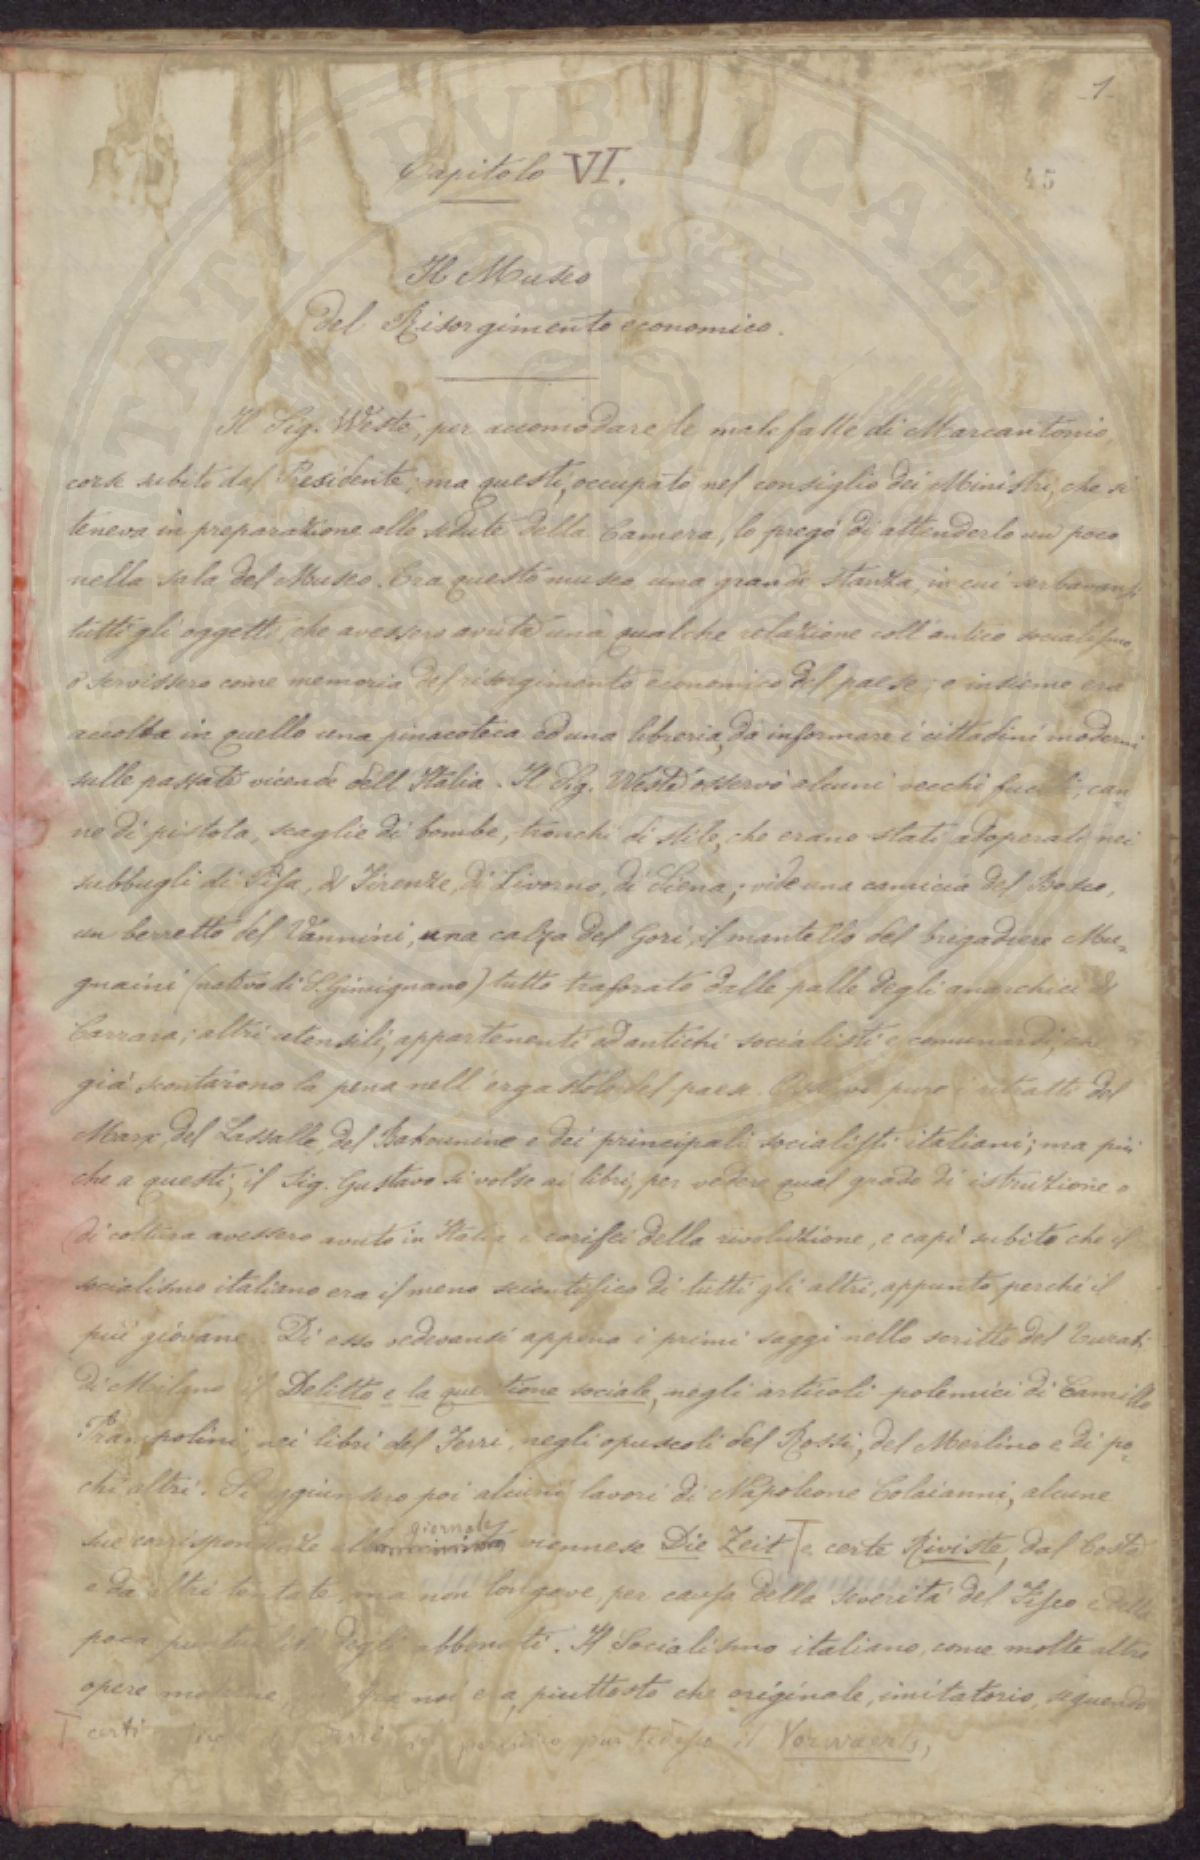 1
Capitolo VI.
45
Il Museo
del Risorgimento economico.
Il Sig. Weste, per accomodare le malefatte di Marcantonio,
corse subito dal Presidente; ma questi, occupato nel consiglio dei Ministri, che si
teneva in preparazione alle sedute della Camera, lo pregò di attenderlo un poco
nella sala del Museo. Era questo museo una grande stanza, in cui serbavansi
tutti gli oggetti, che avessero avuta una qualche relazione coll'antico socialismo
o servissero come memoria del risorgimento economico del paese; e insieme era
accolta in quello una pinacoteca ed una libreria, da informare i cittadini moderni
sulle passate vicende dell'Italia. Il Sig. Weste osservò alcuni vecchi fucili, can-
ne di pistola, scaglie di bombe, tronchi di stile, che erano stati adoperati nei
subbugli di Pisa, di Firenze, di Livorno, di Siena; vide una camicia del Bosco,
un berretto del Vannini, una calza del Gori, il mantello del bregadiere Mu-
gnaini (nativo di S. Gimignano) tutto traforato dalle palle degli anarchici di
Carrara; altri utensili, appartenenti ad antichi socialisti e comunardi, che
già scontarono la pena nell'ergastolo del paese. Osservò pure i ritratti del
Marx, del Lassalle, del Bakounine e dei principali socialisti italiani; ma più
che a questi, il Sig. Gustavo si volse ai libri, per vedere qual grado di istruzione o
di coltura avessero avuto in Italia i corifei della rivoluzione, e capì subito che il
socialismo italiano era il meno scientifico di tutti gli altri, appunto perché il
più giovane. Di esso vedevansi appena i primi saggi nello scritto del Turati
di Milano il Delitto e la questione sociale, negli articoli polemici di Camillo
Prampolini, nei libri del Ferri, negli opuscoli del Rossi, del Merlino e di po-
chi altri. Si aggiunsero poi alcuni lavori di Napoleone Colaianni, alcune
giornale
sue corrispondenze alla viennese Die Zeit T e certe Riviste, dal Costa
e da altri tentate, ma non longeve, per causa della severità del Fisco e della
poca puntualità degli abbonati. Il Socialismo italiano, come molte altre
opere moderne, fra noi era, piuttosto che originale, imitatorio, seguendo
T certi del Ferri nel periodico pur tedesco il Vorwaerts,